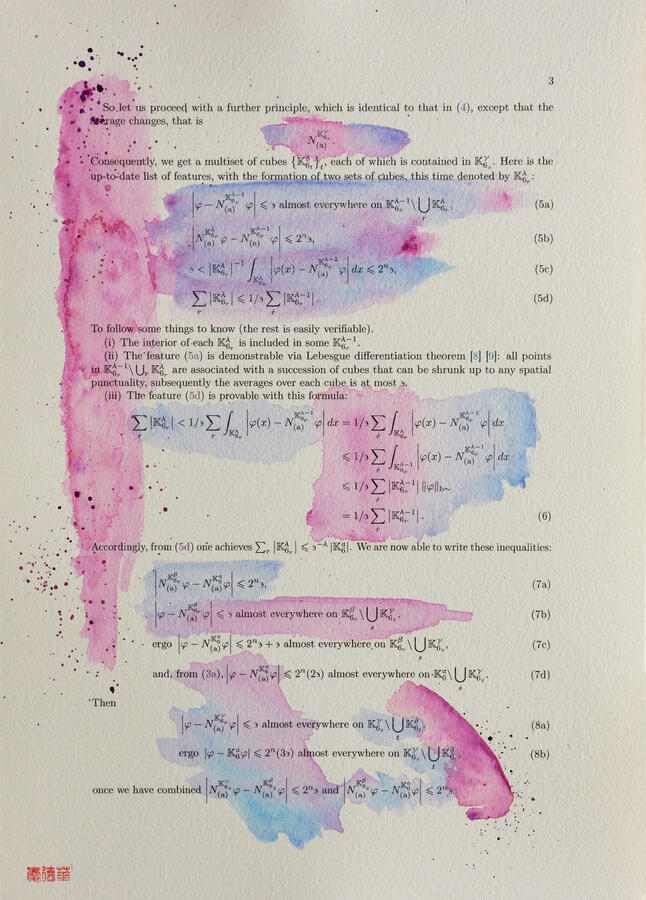 3
So let us proceed with a further principle, which is identical to that in (4), except that the
average changes, that is
N_{(a)}^{𝕂_{6_r}^γ}
Consequently, we get a multiset of cubes {𝕂_{6_t}^δ}_t, each of which is contained in 𝕂_{6_s}^γ. Here is the
up-to-date list of features, with the formation of two sets of cubes, this time denoted by 𝕂_{6_r}^λ:
|φ − N_{(a)}^{𝕂_{6_r}^{λ−1}} φ| ⩽ ϶ almost everywhere on 𝕂_{6_r}^{λ−1} \ ⋃_r 𝕂_{6_r}^λ, (5a)
|N_{(a)}^{𝕂_{6_r}^λ} φ − N_{(a)}^{𝕂_{6_r}^{λ−1}} φ| ⩽ 2^n ϶, (5b)
϶ < |𝕂_{6_r}^λ|^{−1} ∫_{𝕂_{6_r}^λ} |φ(x) − N_{(a)}^{𝕂_{6_r}^{λ−1}} φ| dx ⩽ 2^n ϶, (5c)
∑_r |𝕂_{6_r}^λ| ⩽ 1/϶ ∑_ṙ |𝕂_{6_r}^{λ−1}|. (5d)
To follow some things to know (the rest is easily verifiable).
(i) The interior of each 𝕂_{6_r}^λ is included in some 𝕂_{6_r}^{λ−1}.
(ii) The feature (5a) is demonstrable via Lebesgue differentiation theorem [8] [9]: all points
in 𝕂_{6_r}^{λ−1} \ ⋃_r 𝕂_{6_r}^λ are associated with a succession of cubes that can be shrunk up to any spatial
punctuality, subsequently the averages over each cube is at most ϶.
(iii) The feature (5d) is provable with this formula:
∑_r |𝕂_{6_r}^λ| < 1/϶ ∑_r ∫_{𝕂_{6_r}^λ} |φ(x) − N_{(a)}^{𝕂_{6_r}^{λ−1}} φ| dx = 1/϶ ∑_ṙ ∫_{𝕂_{6_r}^λ} |φ(x) − N_{(a)}^{𝕂_{6_r}^{λ−1}} φ| dx
⩽ 1/϶ ∑_ṙ ∫_{𝕂_{6_r}^{λ−1}} |φ(x) − N_{(a)}^{𝕂_{6_r}^{λ−1}} φ| dx
⩽ 1/϶ ∑_ṙ |𝕂_{6_r}^{λ−1}| ‖φ‖_{b∼}
= 1/϶ ∑_ṙ |𝕂_{6_r}^{λ−1}|. (6)
Accordingly, from (5d) one achieves ∑_r |𝕂_{6_r}^λ| ⩽ ϶^{−λ} |𝕂_6^α|. We are now able to write these inequalities:
|N_{(a)}^{𝕂_{6_r}^β} φ − N_{(a)}^{𝕂_6^α} φ| ⩽ 2^n ϶, (7a)
|φ − N_{(a)}^{𝕂_{6_r}^β} φ| ⩽ ϶ almost everywhere on 𝕂_{6_r}^β \ ⋃_s 𝕂_{6_s}^γ, (7b)
ergo |φ − N_{(a)}^{𝕂_6^α} φ| ⩽ 2^n ϶ + ϶ almost everywhere on 𝕂_{6_r}^β \ ⋃_s 𝕂_{6_s}^γ, (7c)
and, from (3a), |φ − N_{(a)}^{𝕂_6^α} φ| ⩽ 2^n(2϶) almost everywhere on 𝕂_6^α \ ⋃_s 𝕂_{6_s}^γ. (7d)
Then
|φ − N_{(a)}^{𝕂_{6_s}^γ} φ| ⩽ ϶ almost everywhere on 𝕂_{6_s}^γ \ ⋃_t 𝕂_{6_t}^δ, (8a)
ergo |φ − 𝕂_6^α φ| ⩽ 2^n(3϶) almost everywhere on 𝕂_{6_s}^γ \ ⋃_t 𝕂_{6_t}^δ, (8b)
once we have combined |N_{(a)}^{𝕂_{6_s}^γ} φ − N_{(a)}^{𝕂_{6_r}^β} φ| ⩽ 2^n ϶ and |N_{(a)}^{𝕂_{6_r}^β} φ − N_{(a)}^{𝕂_6^α} φ| ⩽ 2^n ϶.